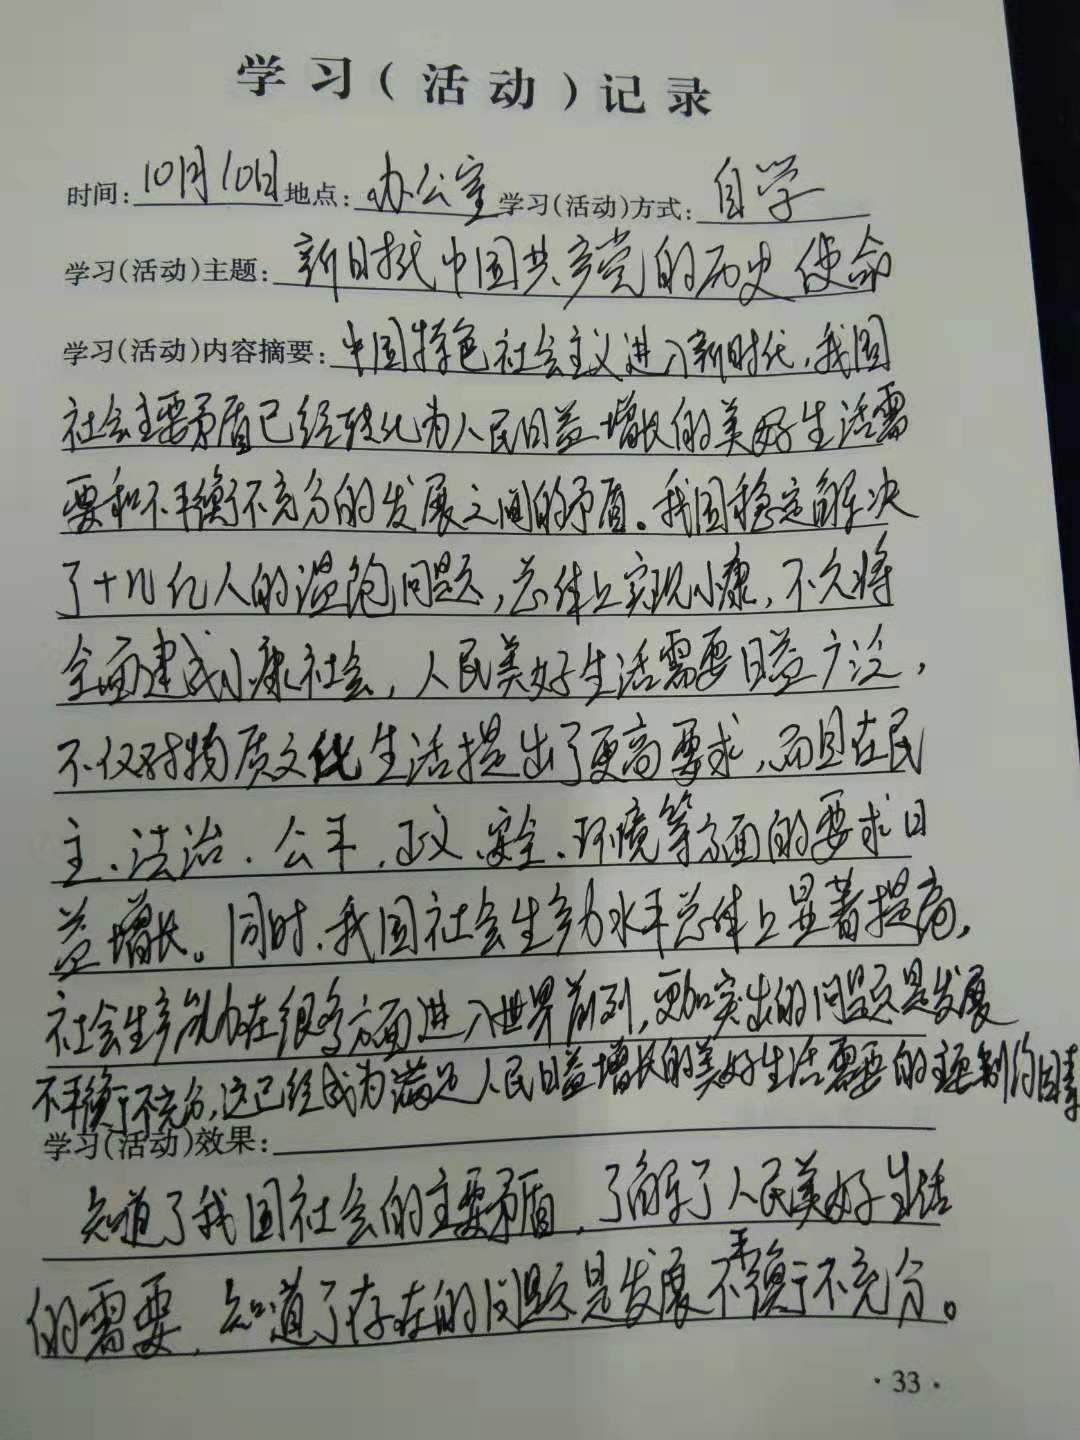 学习(活动)记录
时间:10月10日地点:办公室学习(活动)方式:自学
学习(活动)主题:新时代中国共产党的历史使命
学习(活动)内容摘要:中国特色社会主义进入新时代,我国
社会主要矛盾已经转化为人民日益增长的美好生活需
要和不平衡不充分的发展之间的矛盾。我国稳定解决
了十几亿人的温饱问题,总体上实现小康,不久将
全面建成小康社会,人民美好生活需要日益广泛,
不仅对物质文化生活提出了更高要求,而且在民
主、法治、公平、正义、安全、环境等方面的要求日
益增长。同时,我国社会生产力水平总体上显著提高,
社会生产能力在很多方面进入世界前列,更加突出的问题是发展
不平衡不充分,这已经成为满足人民日益增长的美好生活需要的主要制约因素
学习(活动)效果:
知道了我国社会的主要矛盾,了解了人民美好生活
的需要,知道了存在的问题是发展不平衡不充分。
·33·